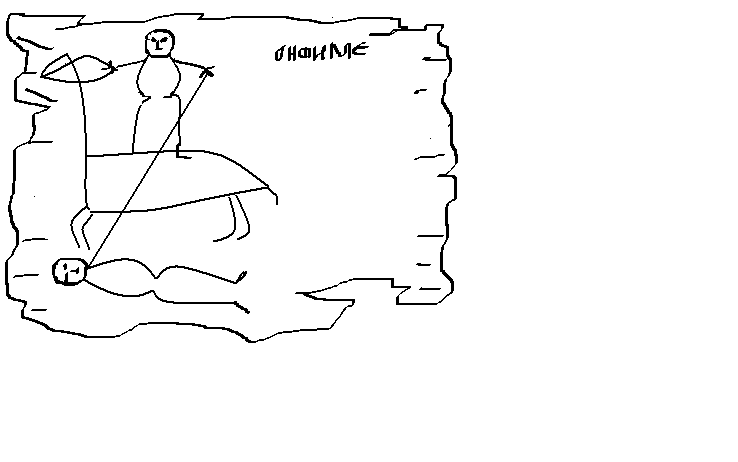 ОНФИМЕ